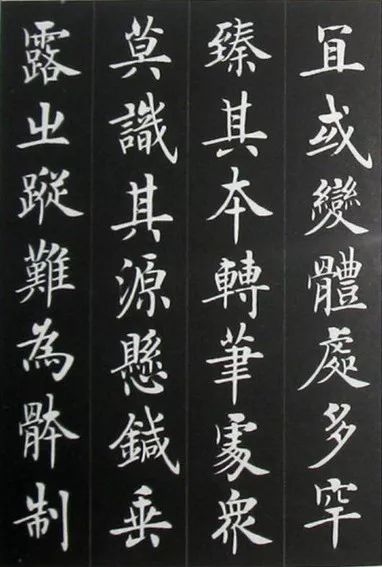 冝或變體處多罕
臻其本轉筆䖏衆
莫識其源懸鍼垂
露之蹤難為骵制